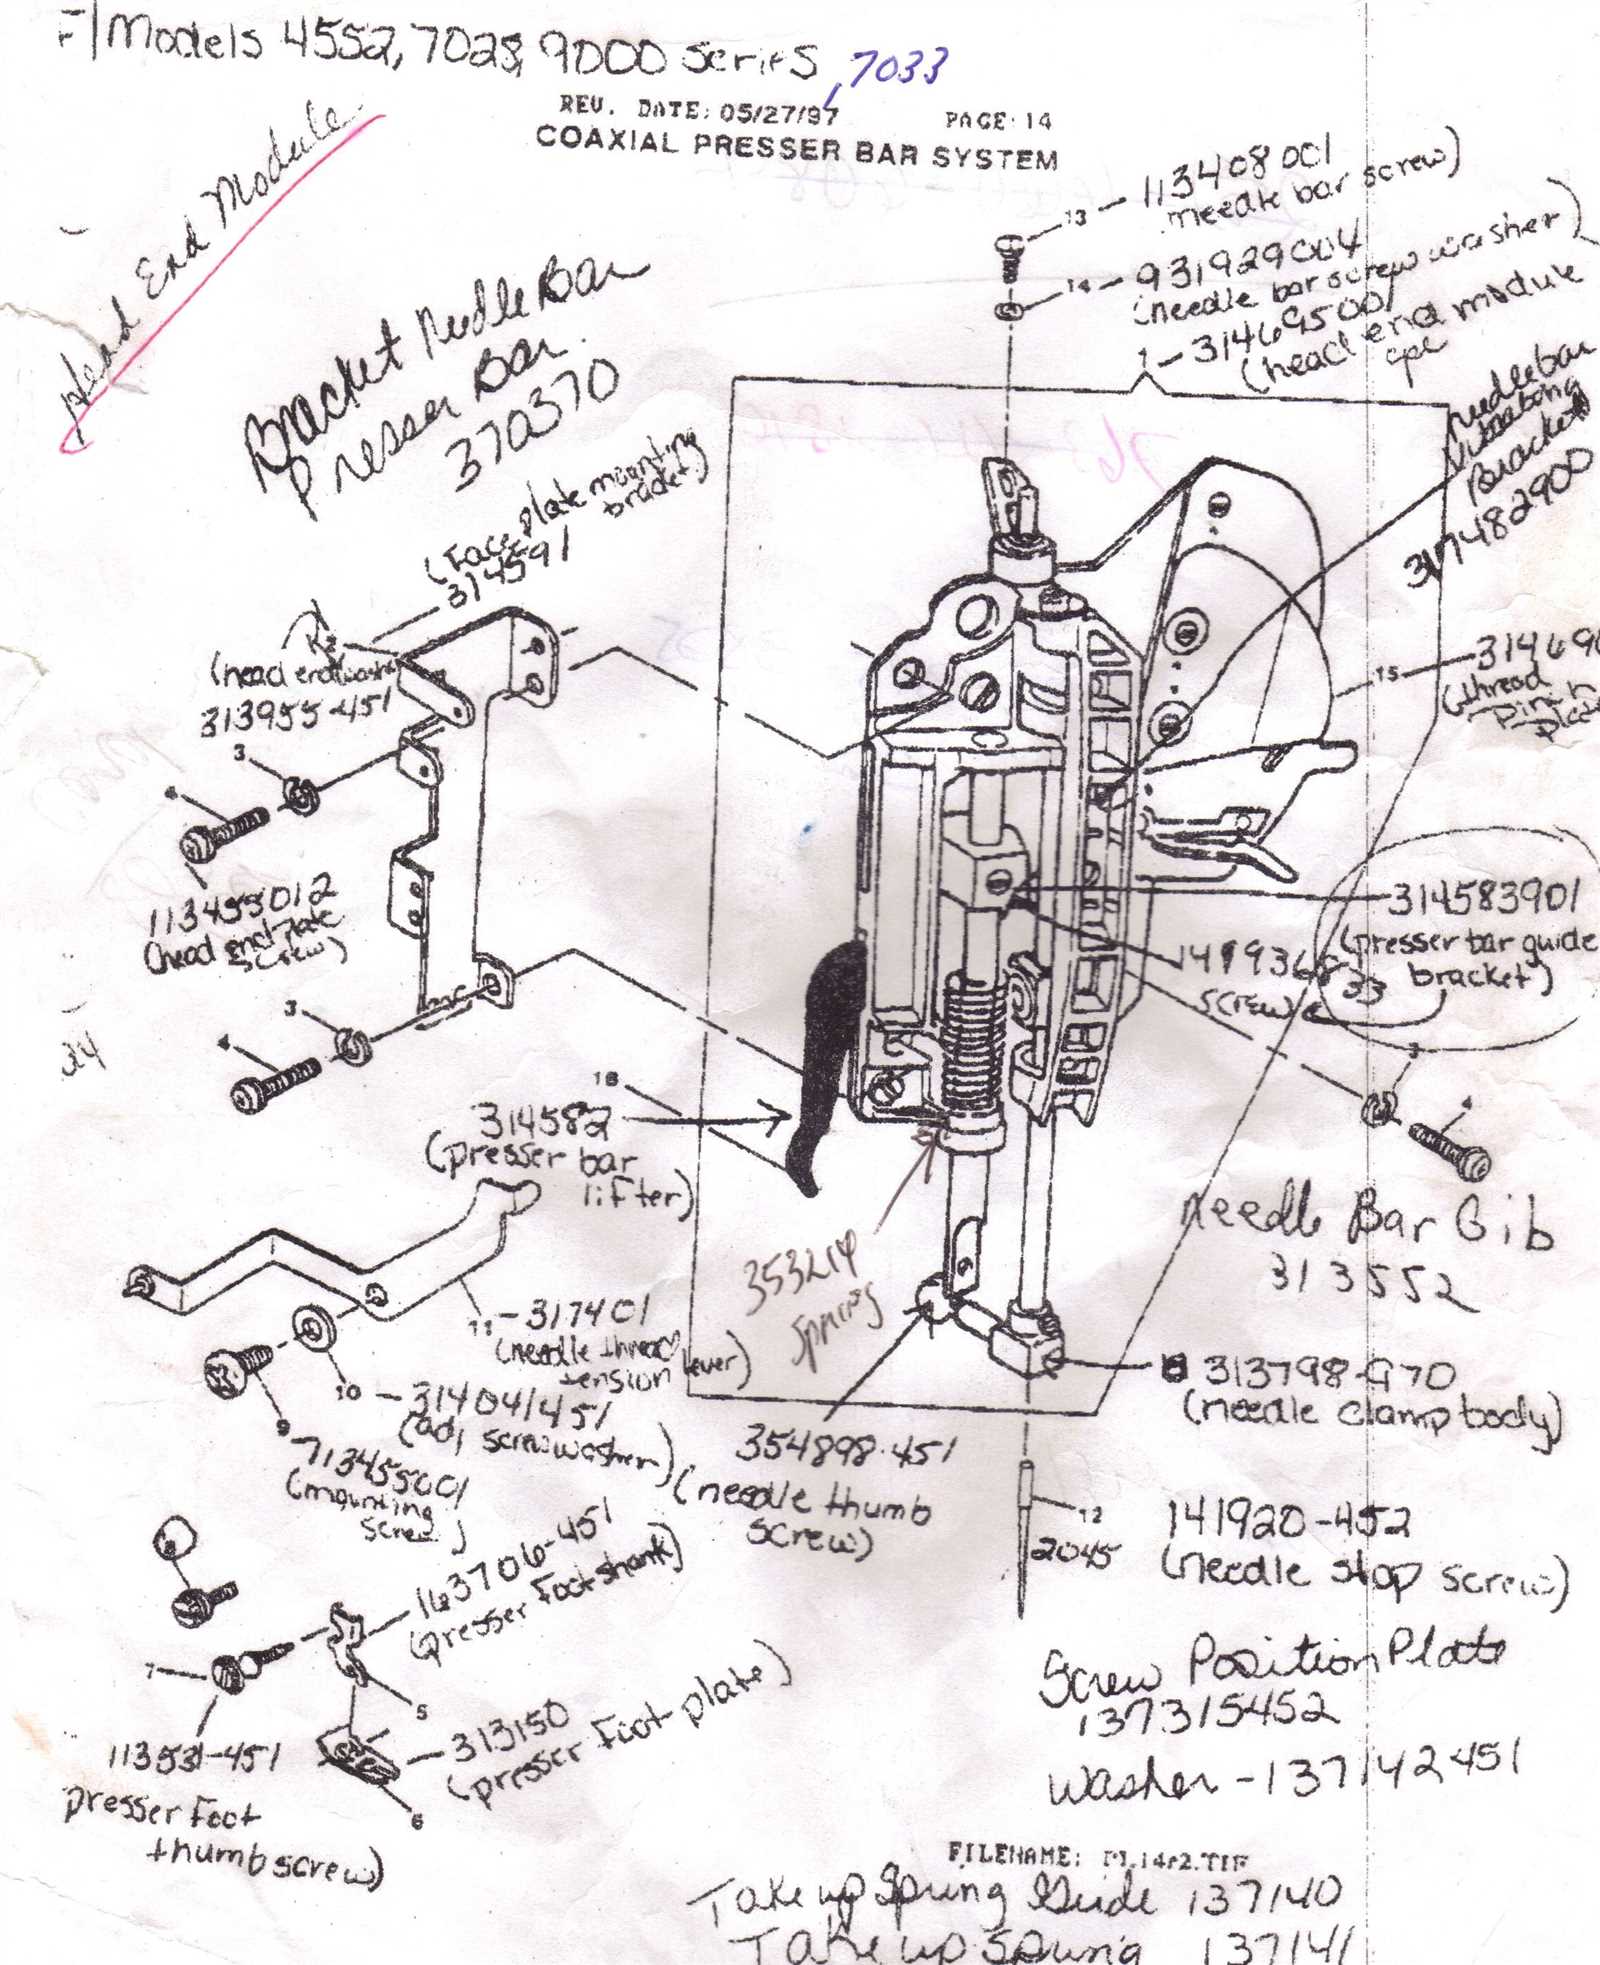 F/Models 4552, 7028, 9000 series, 7033
REV. DATE: 05/27/97 PAGE 14
COAXIAL PRESSER BAR SYSTEM
Head End Module
Bracket Needle Bar
Presser Bar.
370370
13 - 113408001
needle bar screw)
14 - 931929004
(needle bar screw washer)
1 - 314695001
(head end module
cpl
needle bar
Bracket
317482900
(Face plate mounting
bracket)
314591
(head end washer
313955-451
3
4
113455012
(head end plate
screw)
3
4
24
15 - 31469
(thread
314583901
(presser bar guide
bracket)
33
1419368
screw)
3
4
18
314582
(presser bar
lifter)
353214
spring
Needle Bar Gib
313552
11 - 317401
(needle thread
tension lever)
10 - 314041451
(adj screw washer)
9
713455001
(mounting
screw)
313798-970
(needle clamp body)
354898-451
(needle thumb
screw)
12
2045
141920-452
(needle stop screw)
163706-451
(presser foot shank)
7
5
Screw Position Plate
137315452
113531-451
presser foot
thumbscrew)
313150
(presser foot plate)
6
Washer - 137142451
FILENAME:
Take up Spring Guide 137140
Take up Spring 137141